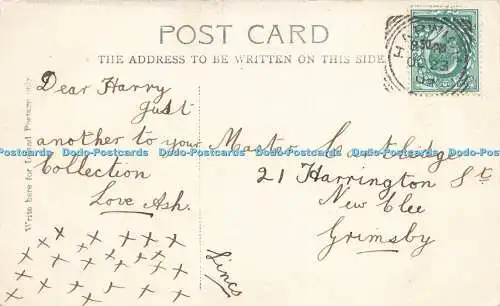 POST CARD
THE ADDRESS TO BE WRITTEN ON THIS SIDE
Write here for Inland Postage only
Dear Harry
Just
another to your
Collection
Love Ash.
Master
21 Harrington St
New Clee
Grimsby
Lincs
Dodo-Postcards Dodo-Postcards Dodo-Postcards Dodo-Postcards Dodo-Postcards Dodo-Postcards